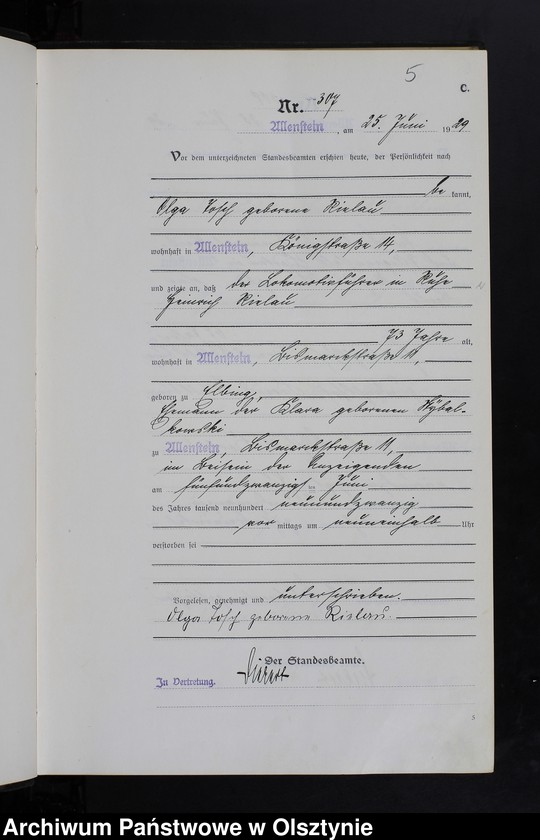 5
C.
Nr. 307
Allenstein, am 25. Juni 1929
Vor dem unterzeichneten Standesbeamten erschien heute, der Persönlichkeit nach
be kannt,
Olga Tosch geborene Rielau
wohnhaft in Allenstein, Königstraße 14,
und zeigte an, daß der Lokomotivführer in Ruhe
Heinrich Rielau
73 Jahre alt,
wohnhaft in Allenstein, Bismarckstraße 11,
geboren zu Elbing,
Ehemann der Klara geborenen
zu Allenstein, Bismarckstraße 11,
im Beisein der Anzeigenden
am fünfundzwanzigsten Juni
des Jahres tausend neunhundert neunundzwanzig
vor mittags um neuneinhalb Uhr
verstorben sei
Vorgelesen, genehmigt und unterschrieben.
Olga Tosch geborene Rielau.
Der Standesbeamte.
In Vertretung.
5
Archiwum Państwowe w Olsztynie